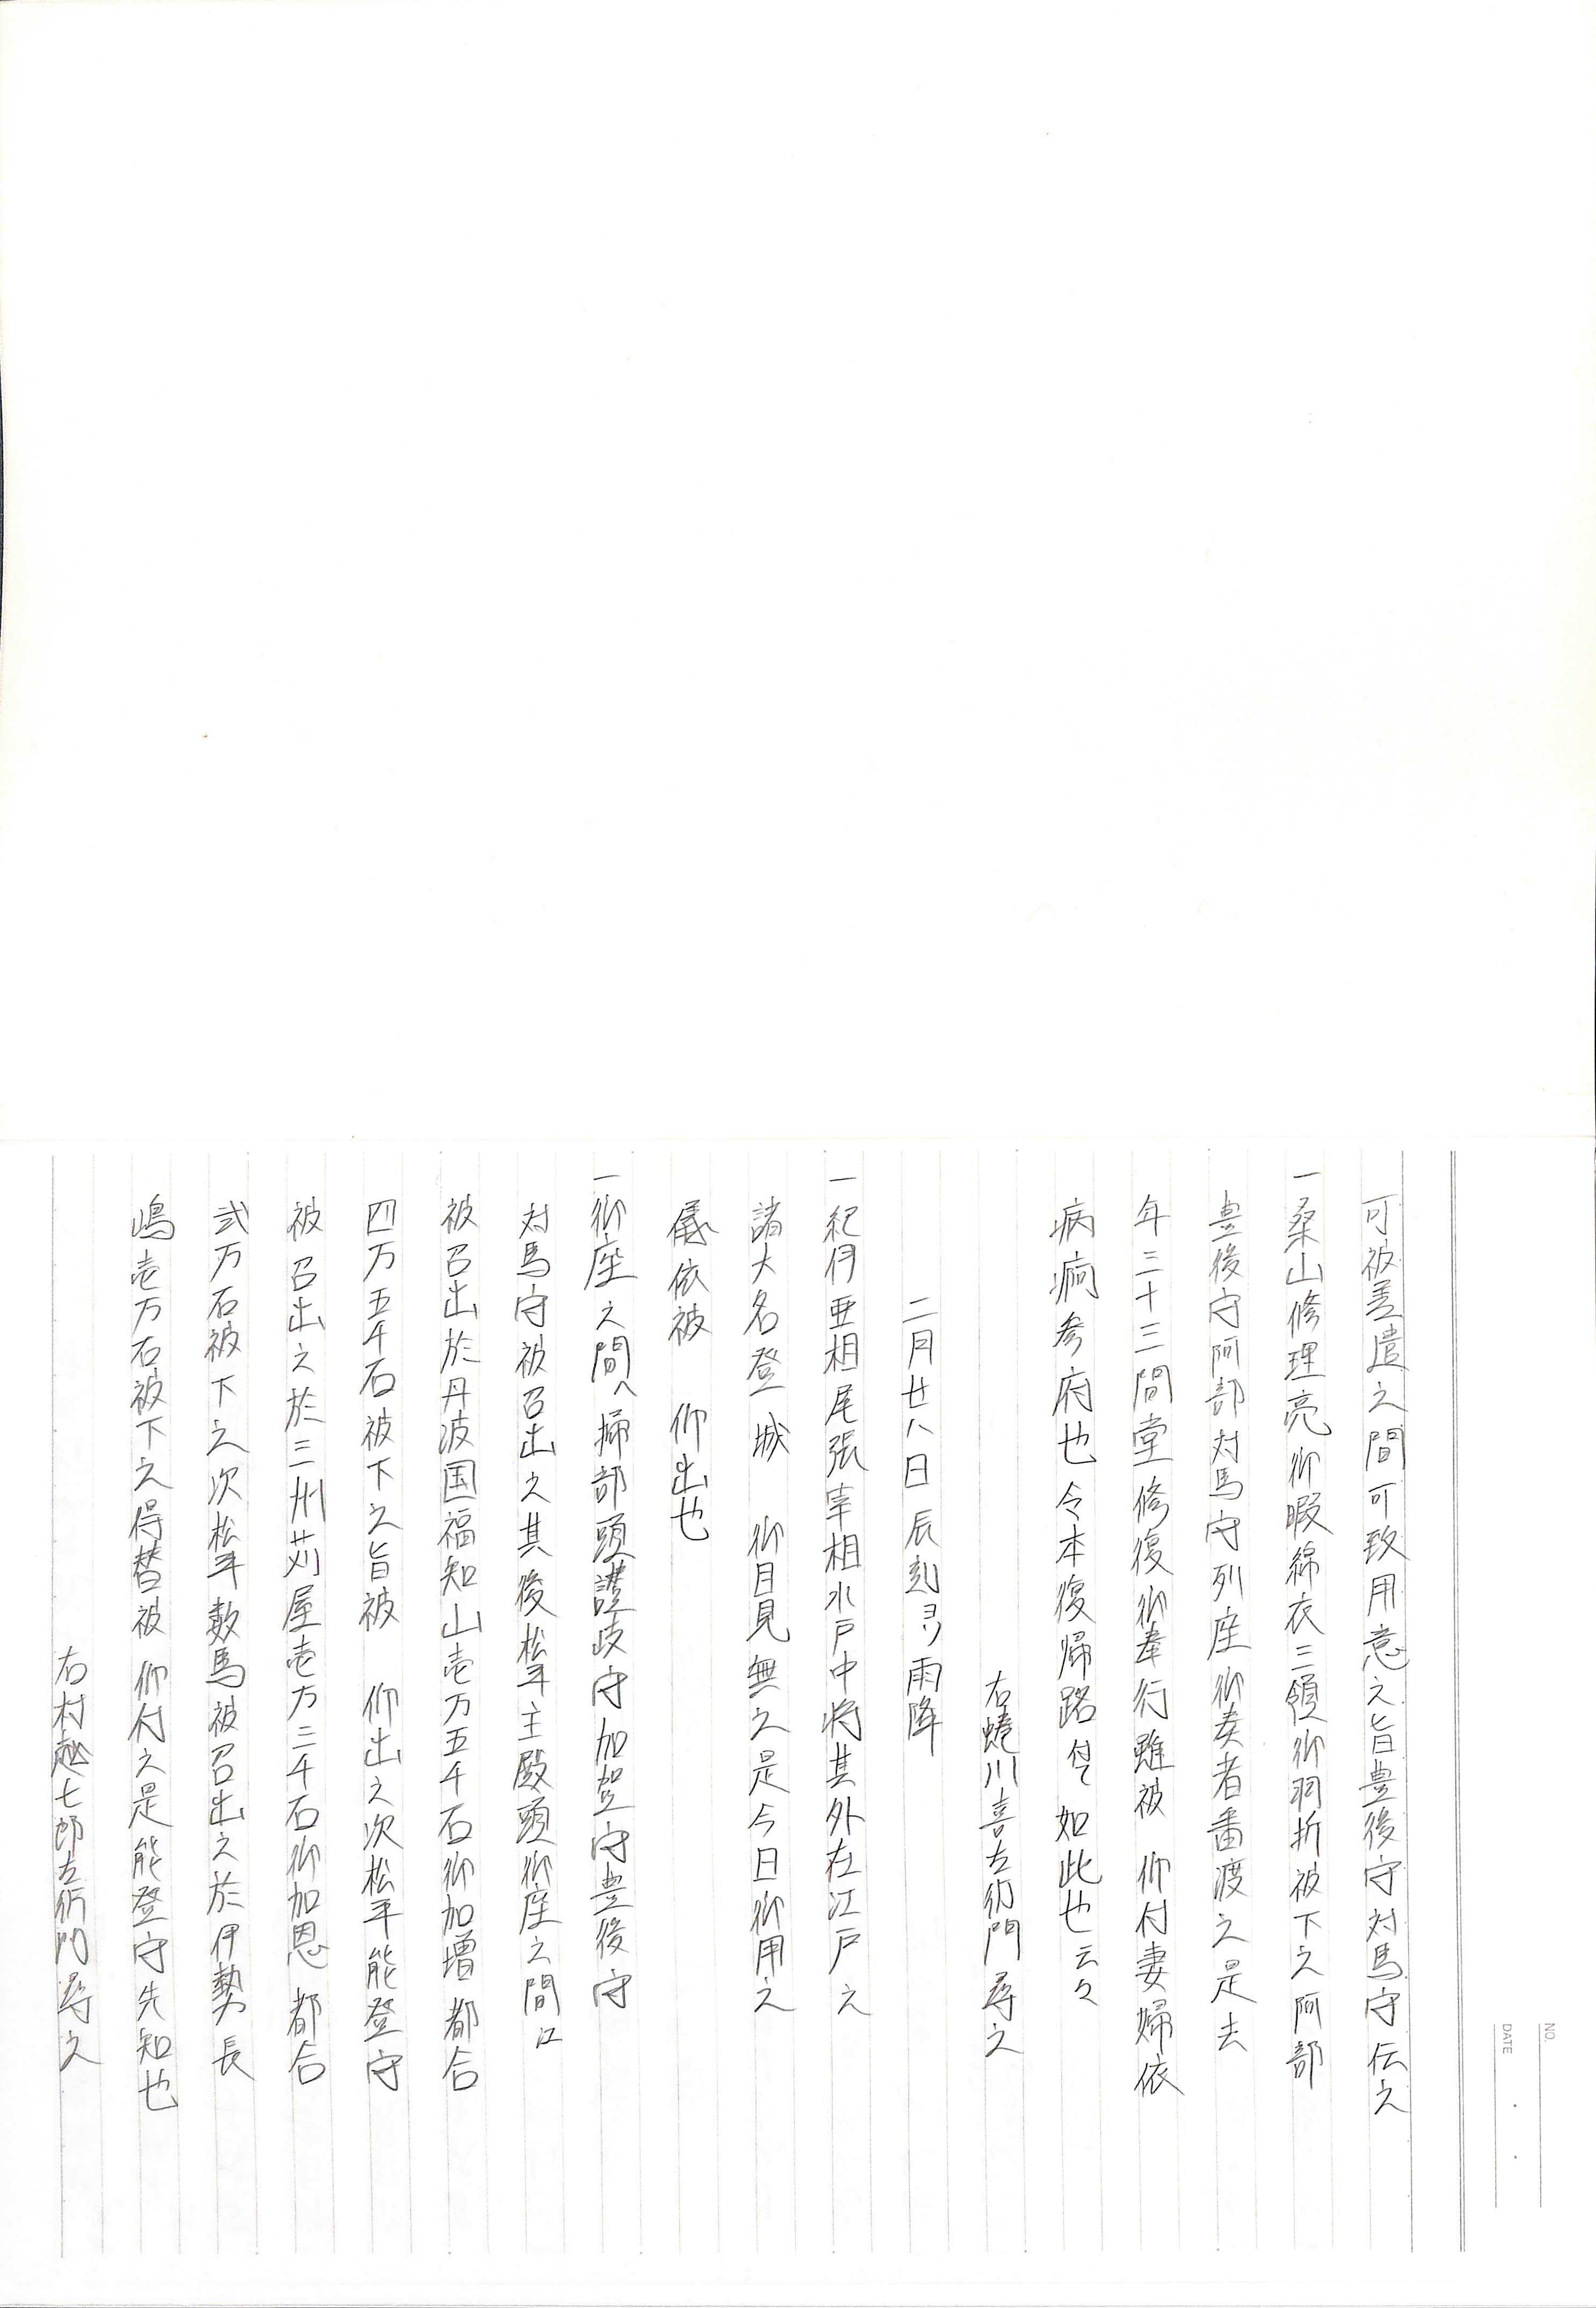 可被差遣之間可致用意之旨豊後守対馬守伝之
一桑山修理亮御暇綿衣三領御羽折被下之阿部
豊後守阿部対馬守列座御奏者番渡之是去
年三十三間堂修復御奉行雖被 仰付妻婦依
病痾参府也令本復帰路付而如此也云々
右蜷川喜左衛門尋之
二月廿八日辰刻ヨリ雨降
一紀伊亜相尾張宰相水戸中将其外在江戸之
諸大名登 城 御目見無之是今日御用之
儀依被 仰出也
一御座之間へ掃部頭讃岐守加賀守豊後守
対馬守被召出之其後松平主殿頭御座之間江
被召出於丹波国福知山壱万五千石御加増都合
四万五千石被下之旨被 仰出之次松平能登守
被召出之於三州苅屋壱万三千石御加恩都合
弐万石被下之次松平数馬被召出之於伊勢長
嶋壱万石被下之得替被 仰付之是能登守先知也
右村越七郎左衛門尋之
NO.
DATE